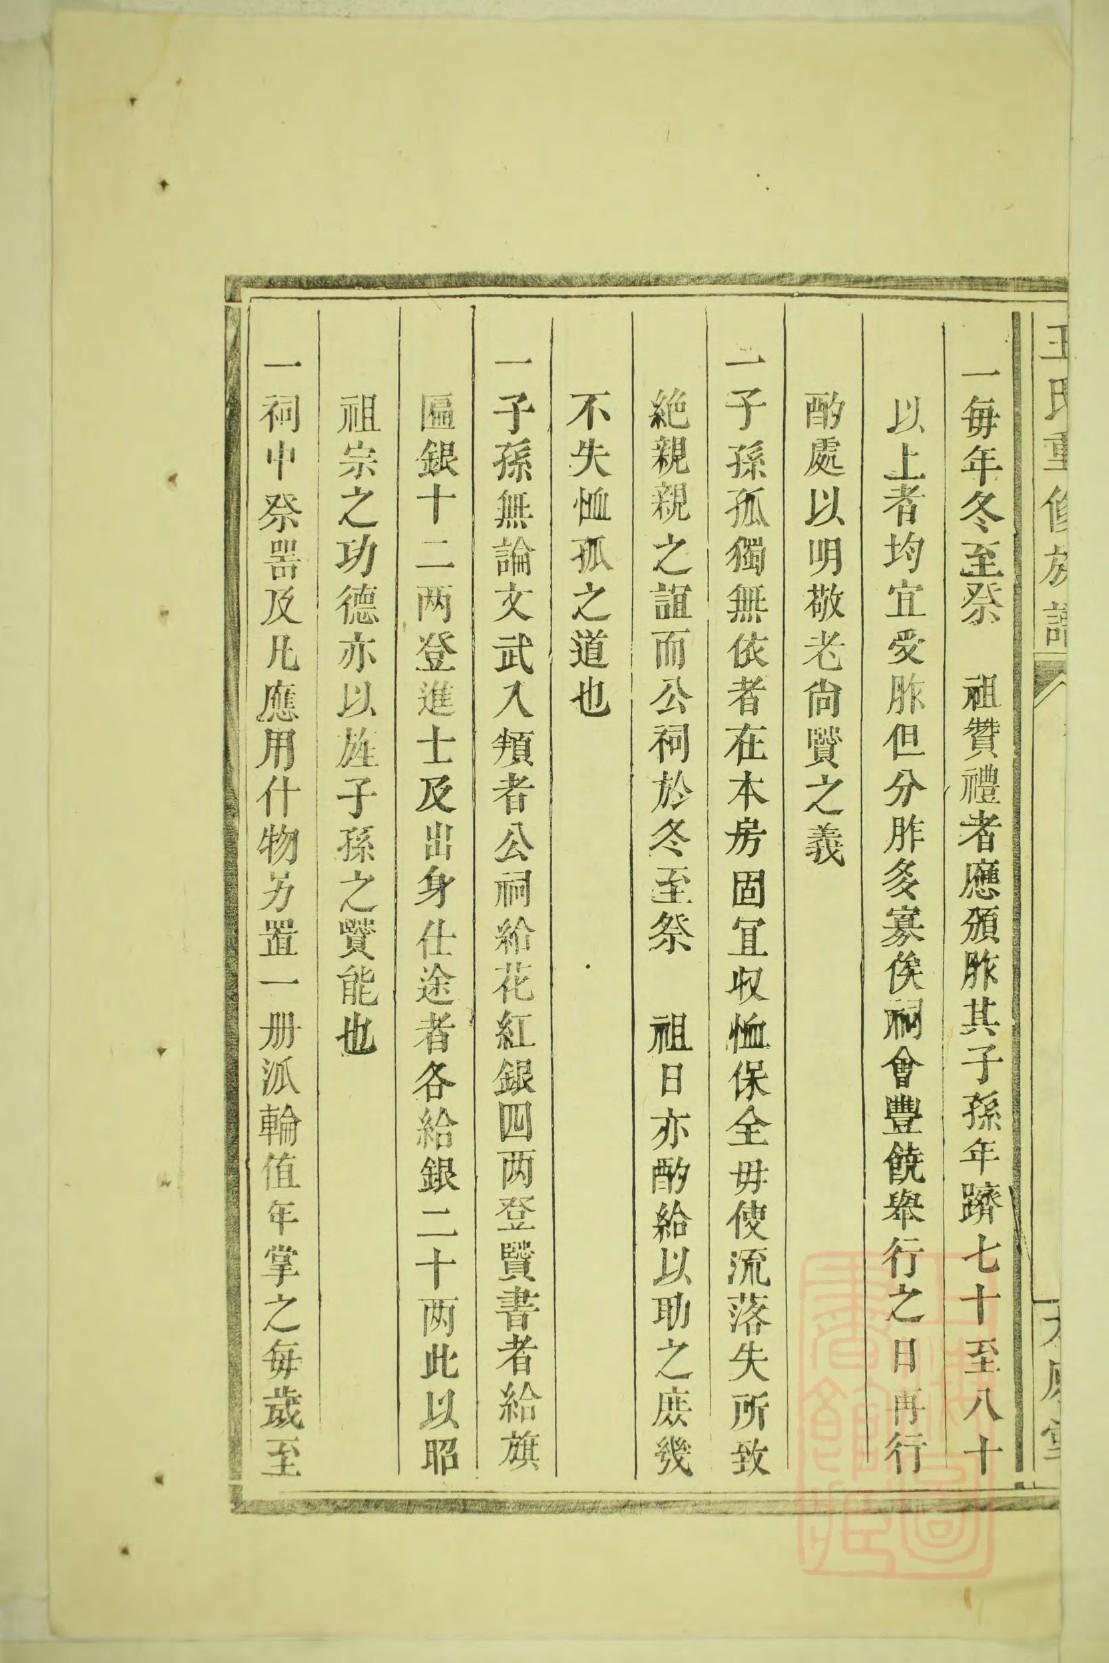 王氏重修族譜
一每年冬至祭　祖贊禮者應頒胙其子孫年躋七十至八十
以上者均宜受胙但分胙多寡俟祠會豐饒舉行之日再行
酌處以明敬老尚賢之義
一子孫孤獨無依者在本房固宜収恤保全毋使流落失所致
絶親親之誼而公祠於冬至祭　祖日亦酌給以助之庶幾
不失恤孤之道也
一子孫無論文武入頖者公祠給花紅銀四两登賢書者給旗
匾銀十二两登進士及出身仕途者各給銀二十两此以昭
祖宗之功德亦以旌子孫之賢能也
一祠中祭器及凡應用什物另置一册派輪值年掌之每歲至
上海圖
書館藏